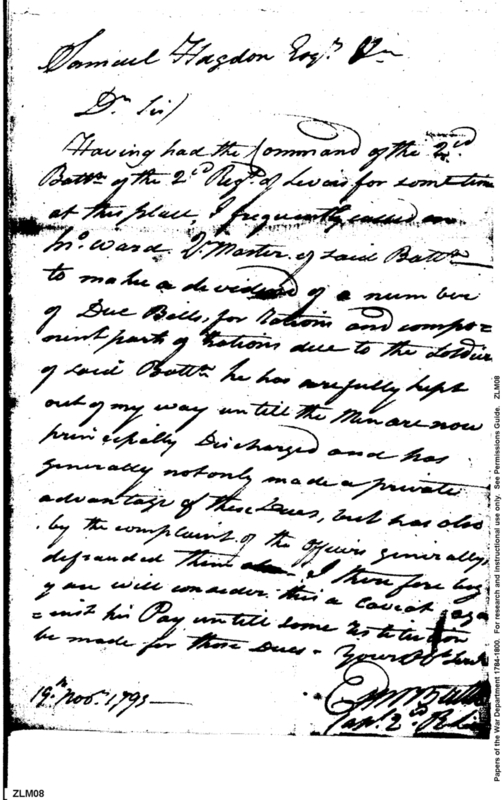 Samuel Hogdon Esqr.
Dr Sir/
Having had the Command of the 2d
Battn of the 2d Regt. of Levies for some time
at this place, I frequently called on
Jno. Ward Q. Master of said Battn
to make a dividend of a number
of Due Bills, for Rations and compo=
nent parts of Rations due to the Soldiers
of said Battn he has carefully kept
out of my way untill the Men are now
principally Discharged and has
generally not only made a private
advantage of these Dues, but has also
by the complaint of the officers generally,
defrauded them I therefore beg
you will consider this a Caveat aga
=inst his Pay untill some restitution
be made for those Dues - Your
19th Novr. 1793
Capt. 2d
ZLM08
Papers of the War Department 1784-1800. For research and instructional use only. See Permissions Guide. ZLM08